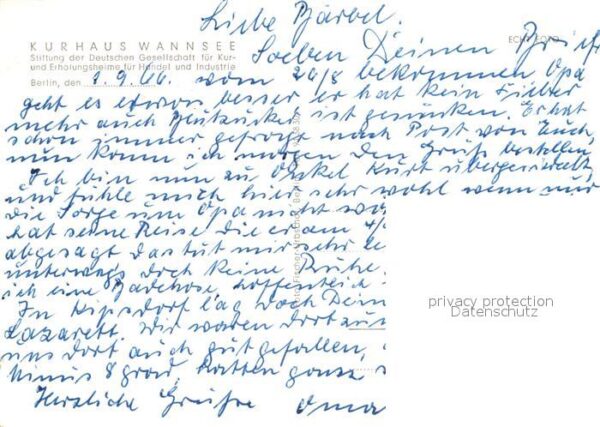 Liebe Bärbel.
KURHAUS WANNSEE
Stiftung der Deutschen Gesellschaft für Kur-
und Erholungsheime für Handel und Industrie
ECHT FOTO
Soeben Deinen Brief
Berlin, den 1.9.66. vom 29/8 bekommen Opa
geht es etwas besser er hat kein Fieber
mehr auch Blutzucker ist gesunken. Er hat
schon immer gefragt nach Post von Euch,
nun kann ich morgen den Gruß bestellen,
Ich bin nun zu Onkel Kurt übergesiedelt,
und fühle mich hier sehr wohl wenn nur
die Sorge um Opa nicht wä
hat seine Reise die er am 4/
abgesagt das tut mir sehr le
unterwegs doch keine Ruhe.
ich eine Badehose hoffentlich
In Kipsdorf lag doch Dein
Lazarett. Wir waren dort zus
uns dort auch gut gefallen,
Minus 8 grad, hatten ganze
Herzliche Grüße Oma
privacy protection
Datenschutz